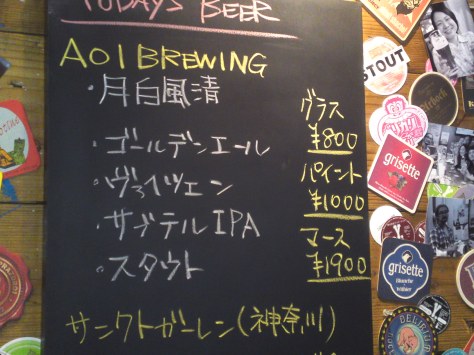 TODAYS BEER
AOI BREWING
・月白風清
・ゴールデンエール
・ヴァイツェン
・サブテルIPA
・スタウト
グラス
¥800
パイント
¥1000
マース
¥1900
サンクトガーレン(神奈川)
STOUT
grisette
grisette
Blanche